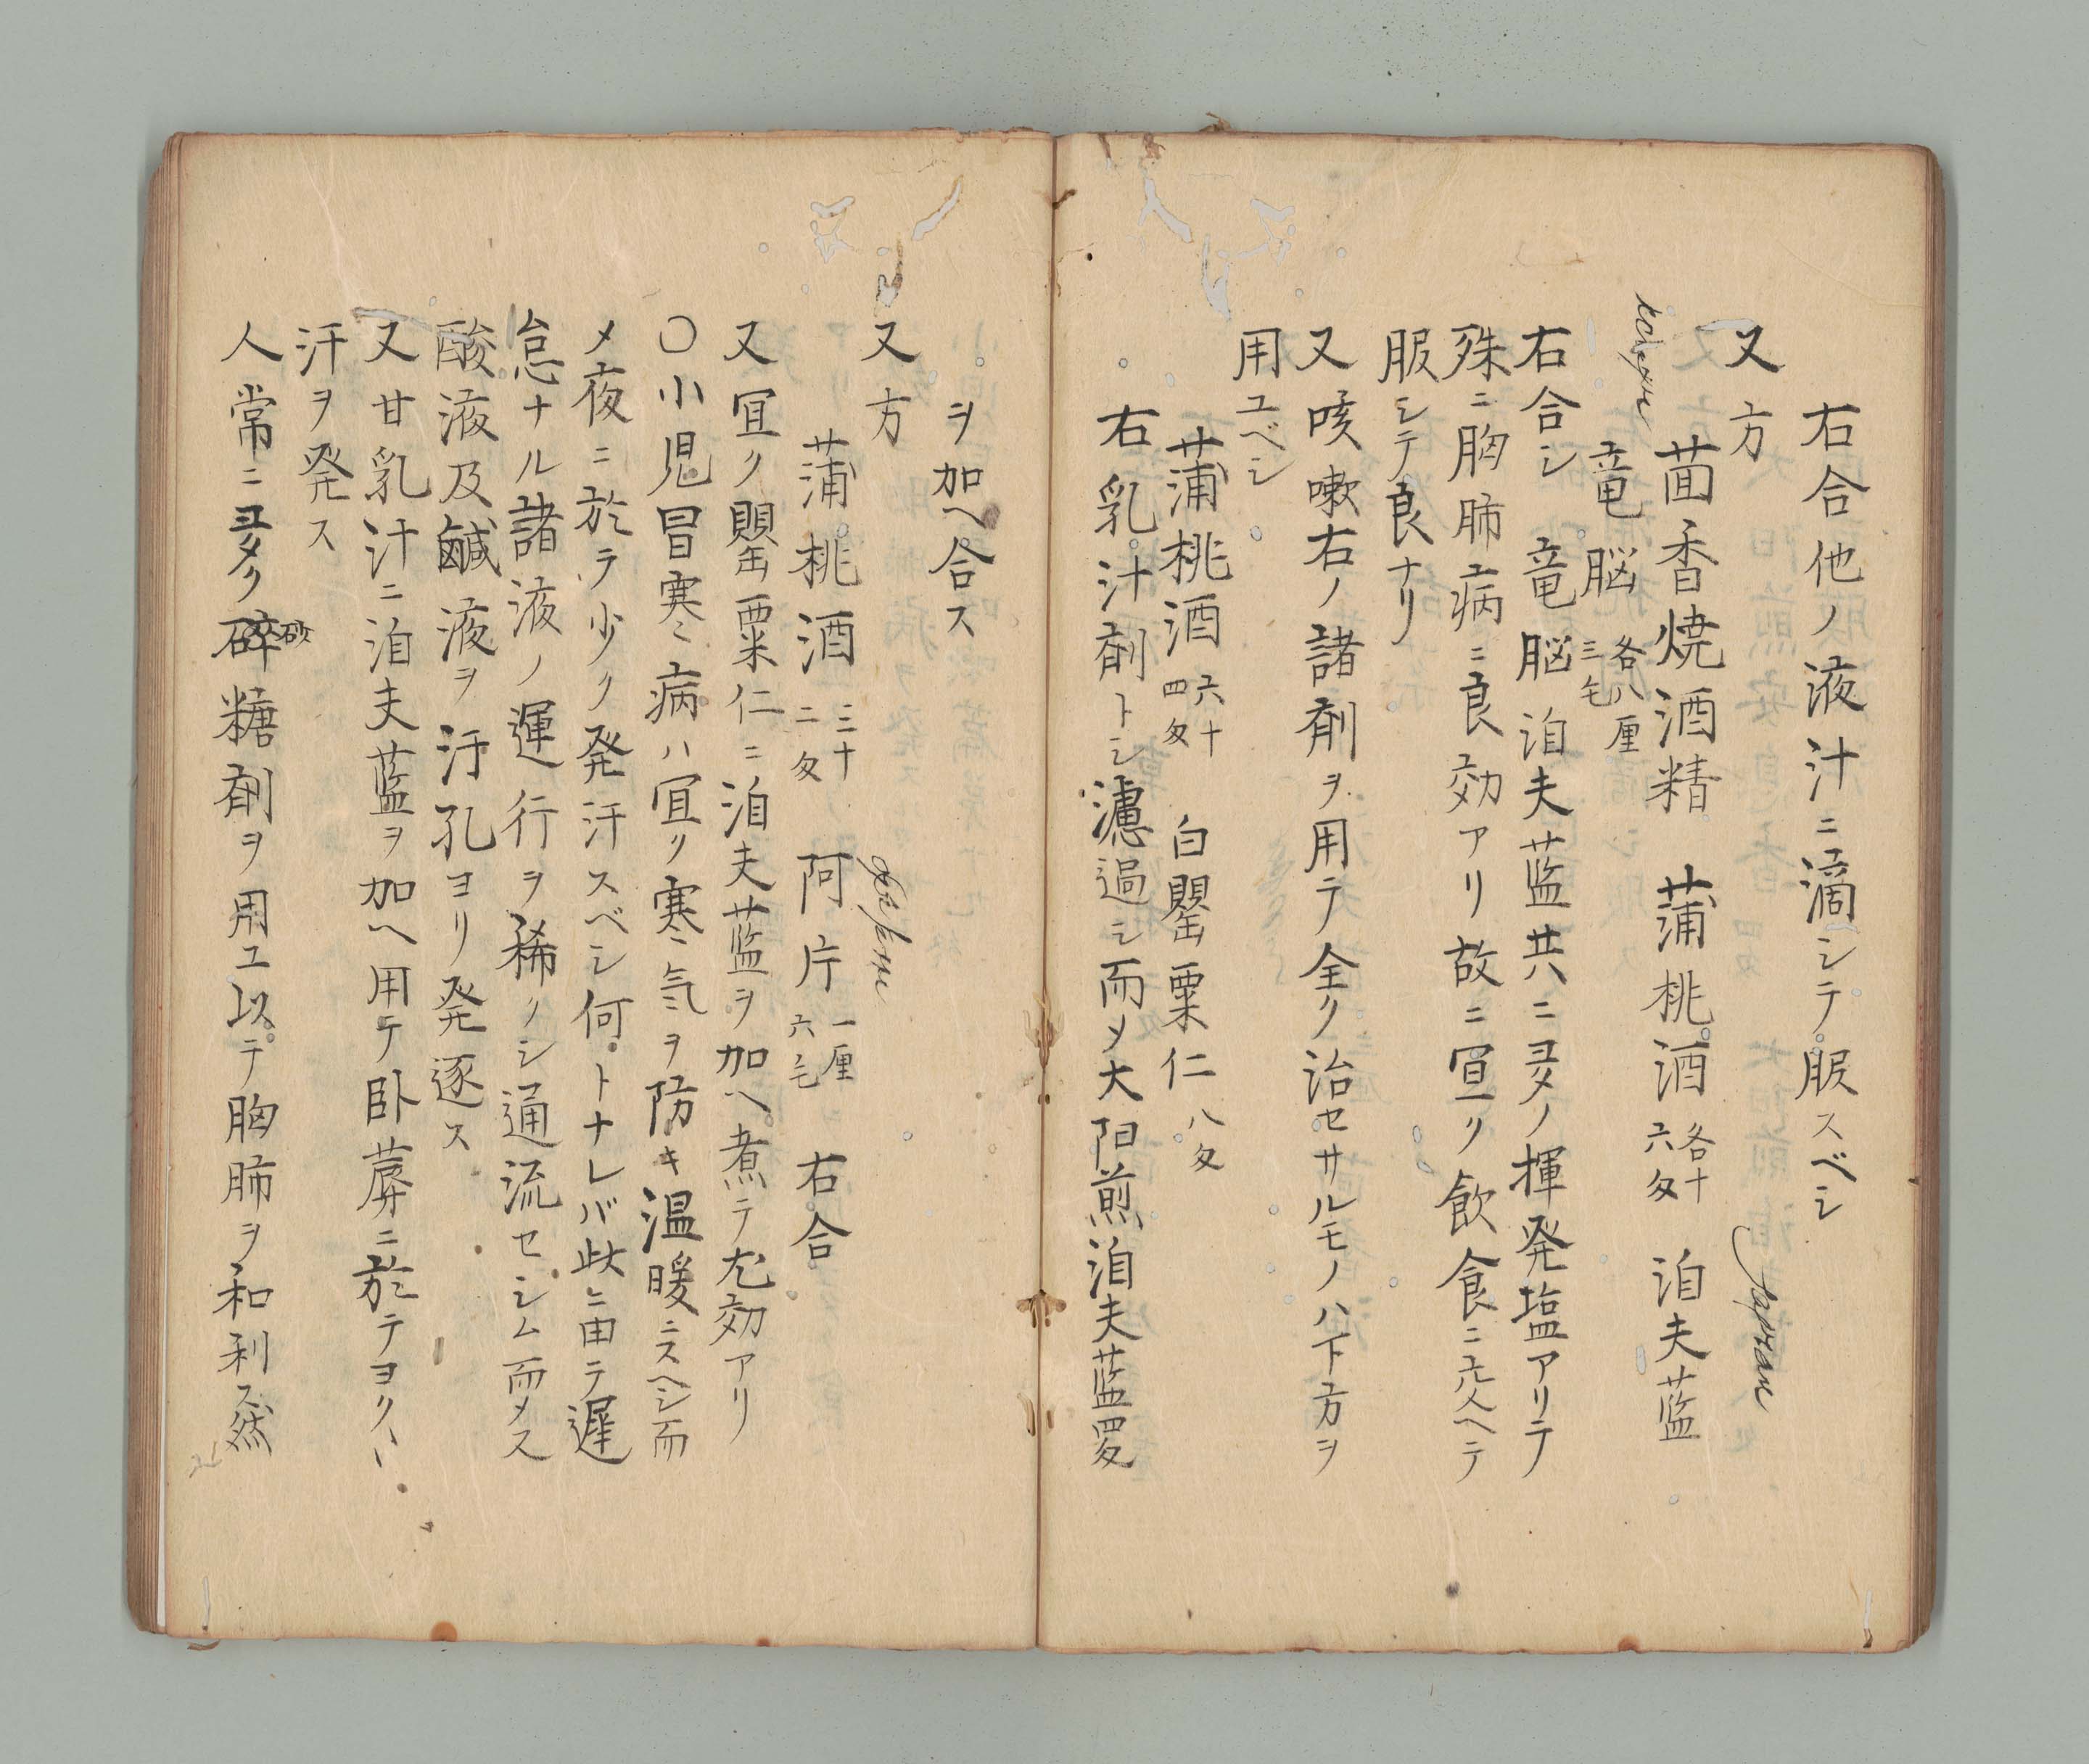 右合他ノ液汁ニ滴シテ服スベシ
又方
茴香焼酒精 蒲桃酒 各十六匁 洎夫藍
竜脳 各八厘三毛
右合シ 竜脳洎夫藍共ニ多ノ揮発塩アリテ
殊ニ胸肺病ニ良効アリ故ニ宜ク飲食ニ
服シテ良ナリ
又咳嗽右ノ諸剤ヲ用テ全ク治セサルモノハ下方ヲ
用ユベシ
蒲桃酒 六十四匁 白罌粟仁 八匁
右乳汁剤トシ濾過シ而メ大陽煎洎夫藍四匁
ヲ加ヘ合ス
又方
蒲桃酒 三十二匁 阿片 一厘六毛 右合
又宜ク罌粟仁ニ洎夫藍ヲ加ヘ煮テ尤効アリ
〇小児冒寒病ハ宜ク寒気ヲ防キ温暖ニスヘシ而
メ夜ニ於テ少ク発汗スベシ何トナレバ此ニ由テ遅
怠ナル諸液ノ運行ヲ稀クシ通流セシム而メス
酸液及鹹液ヲ汗孔ヨリ発逐ス
又甘乳汁ニ洎夫藍ヲ加ヘ用テ臥蓐ニ於テヨク
汗ヲ発ス
人常ニ多ク碎糖剤ヲ用ユ以テ胸肺ヲ和利ス然